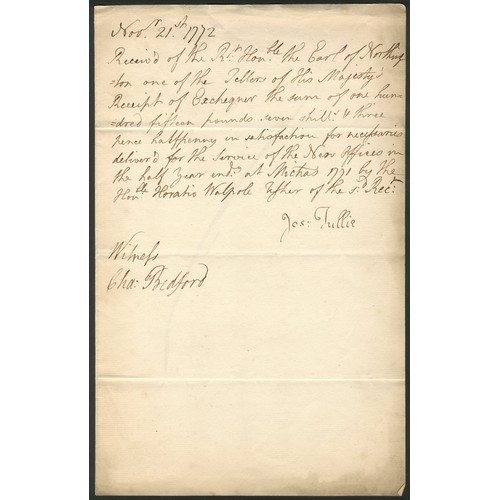 Novr. 21.st 1772
Receiv'd of the Rt. Honble the Earl of Northing
=ton one of the Tellers of His Majesty's
Receipt of Exchequer the sum of one hun
=dred fifteen pounds seven shills. & three
pence halfpenny in satisfaction for necessaries
deliver'd for the Service of the New Offices in
the half Year end.g at Michas 1771 by the
Honble Horatio Walpole Usher of the sd. Rect.
Jos: Tullie
Witness
Cha: Bedford